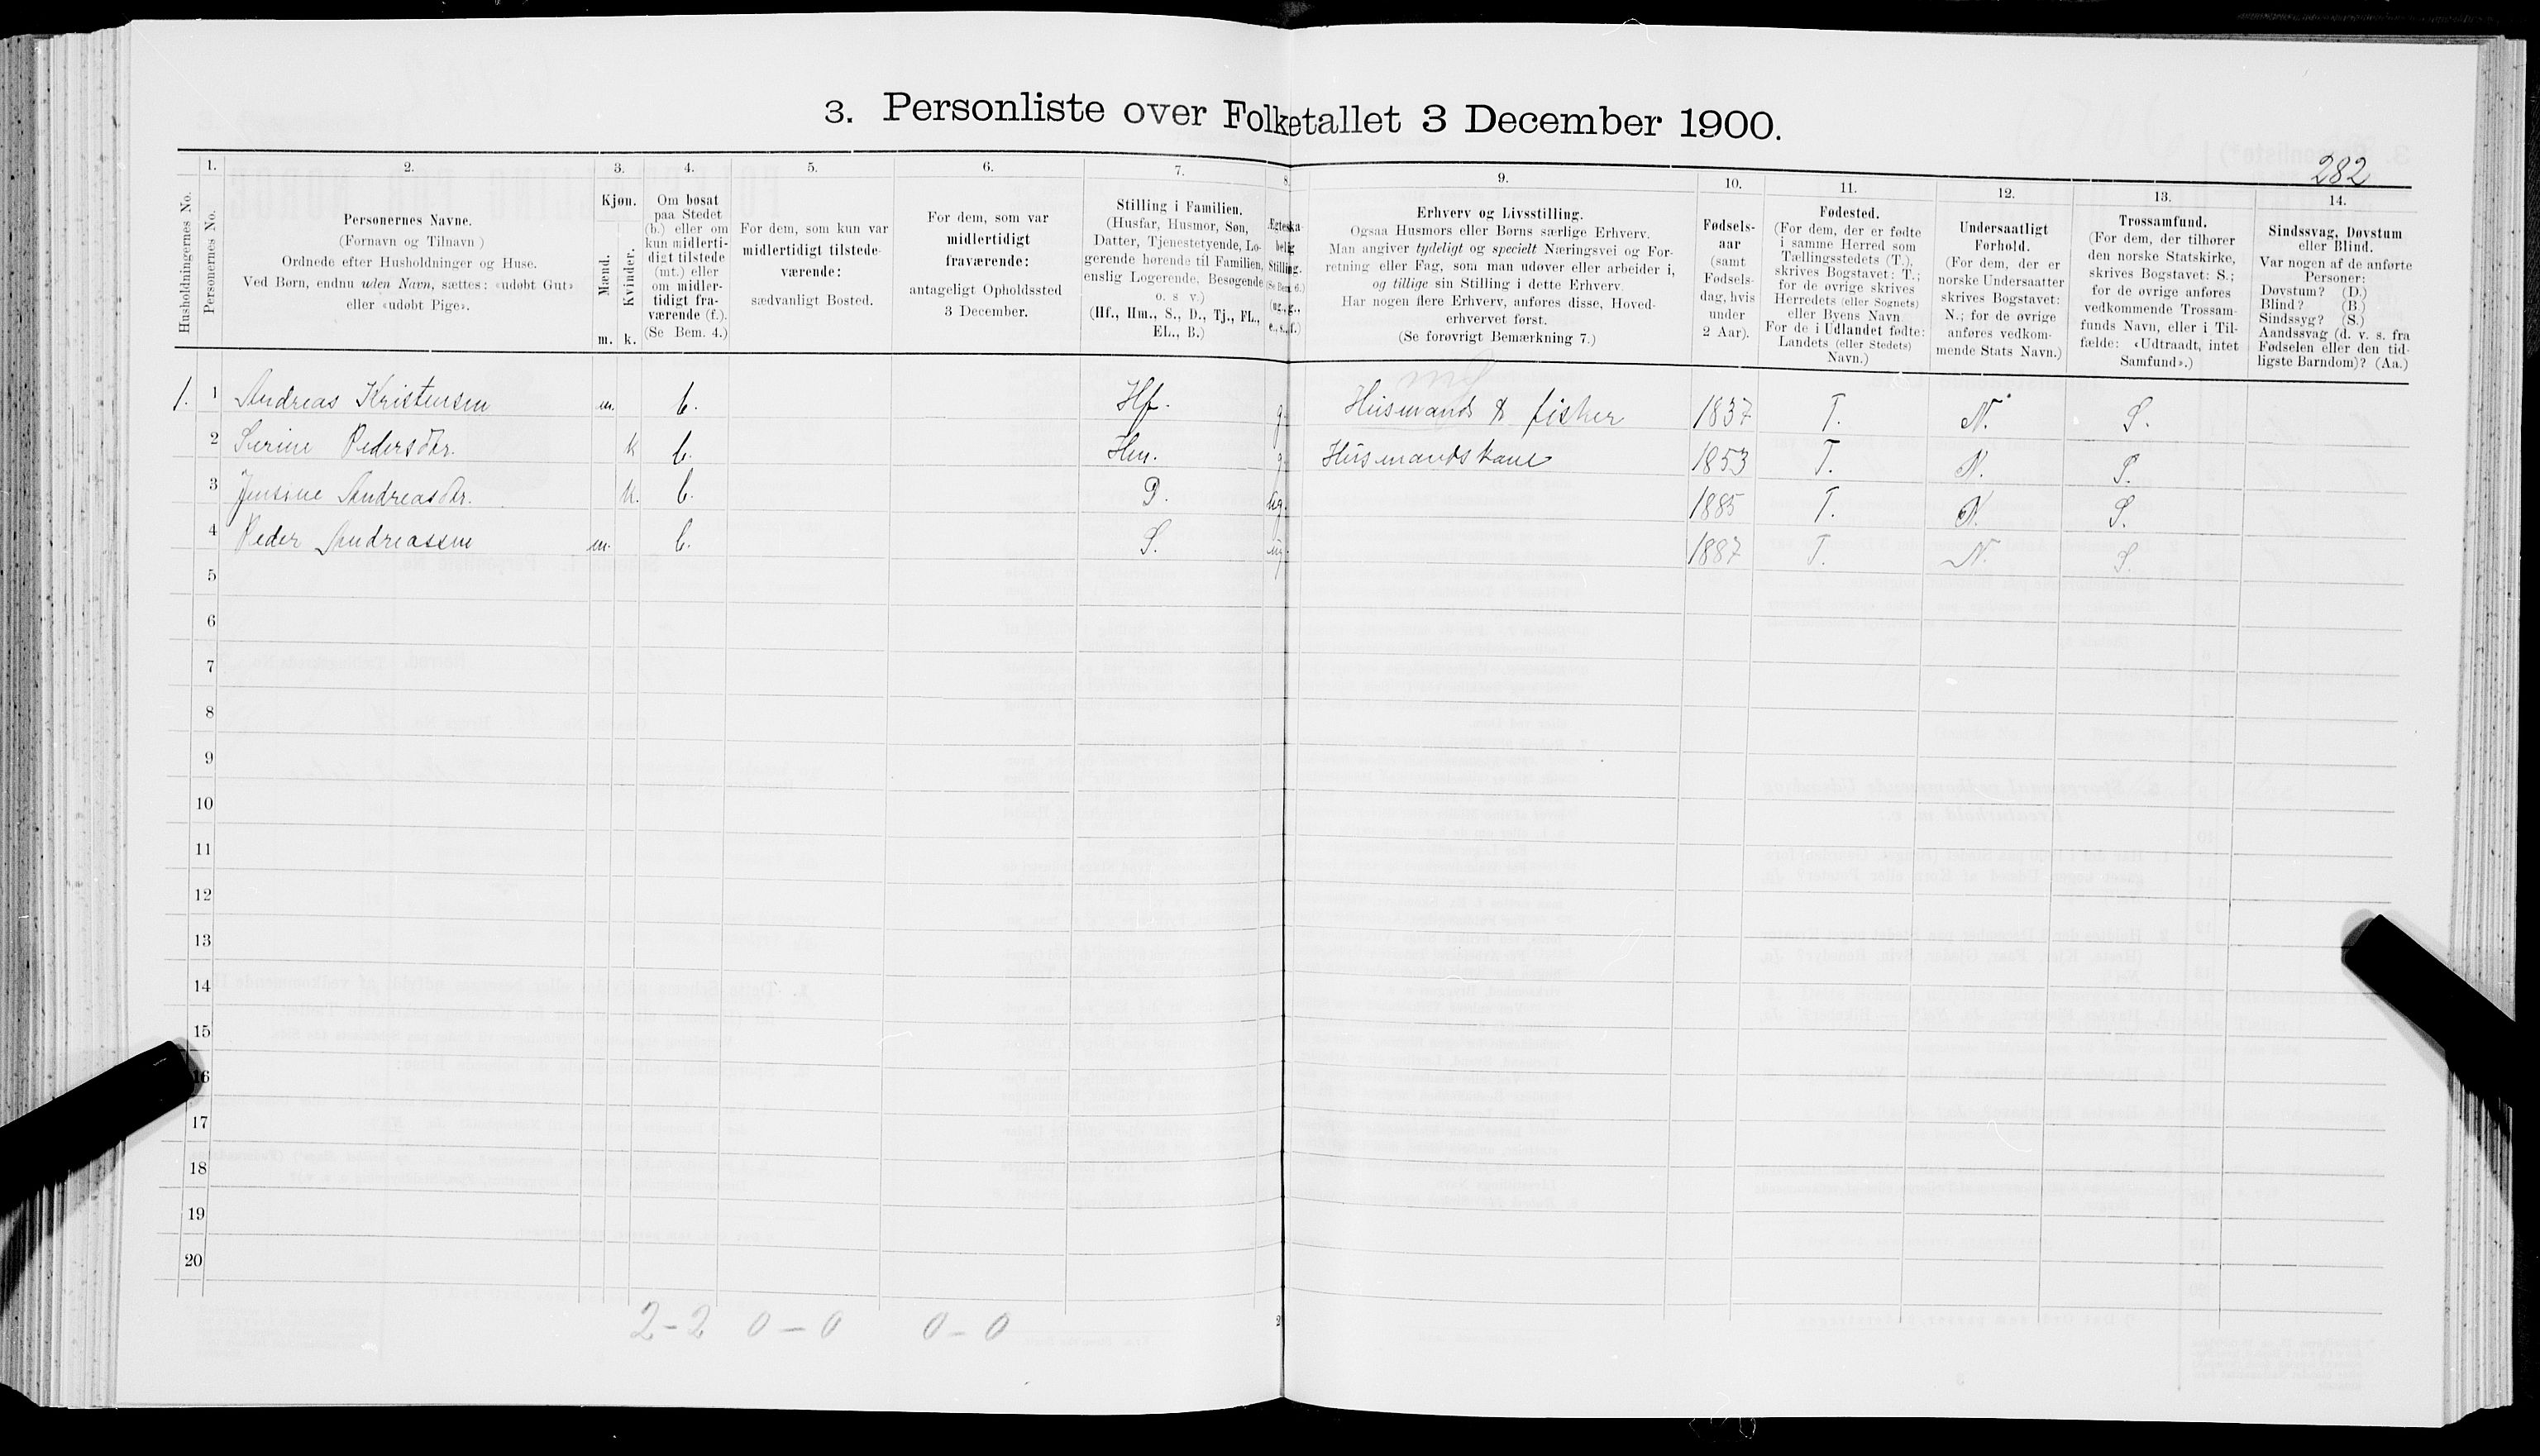 3. Personliste over Folketallet 3 December 1900.
282
Husholdningernes No.
1.
Personernes No.
2.
Personernes Navne.
(Fornavn og Tilnavn)
Ordnede efter Husholdninger og Huse.
Ved Børn, endnu uden Navn, sættes: «udøbt Gut»
eller «udøbt Pige».
3.
Kjøn.
Mænd.
Kvinder.
m. k.
4.
Om bosat
paa Stedet
(b.) eller om
kun midlerti-
digt tilstede
(mt.) eller
om midler-
tidigt fra-
værende (f.).
(Se Bem. 4.)
5.
For dem, som kun var
midlertidigt tilstede-
værende:
sædvanligt Bosted.
6.
For dem, som var
midlertidigt
fraværende:
antageligt Opholdssted
3 December.
7.
Stilling i Familien.
(Husfar, Husmor, Søn,
Datter, Tjenestetyende, Lo-
gerende hørende til Familien,
enslig Logerende, Besøgende
o. s v.)
(Hf., Hm., S., D., Tj., FL.,
EL., B.)
8.
Ægteska-
belig
Stilling.
(Se Bem. 6.)
(ug., g.,
e., s., f.)
9.
Erhverv og Livsstilling.
Ogsaa Husmors eller Børns særlige Erhverv.
Man angiver tydeligt og specielt Næringsvei og For-
retning eller Fag, som man udøver eller arbeider i,
og tillige sin Stilling i dette Erhverv.
Har nogen flere Erhverv, anføres disse, Hoved-
erhvervet først.
(Se forøvrigt Bemærkning 7.)
10.
Fødsels-
aar
(samt
Fødsels-
dag, hvis
under
2 Aar).
11.
Fødested.
(For dem, der er fødte
i samme Herred som
Tællingsstedets (T.),
skrives Bogstavet: T.;
for de øvrige skrives
Herredets (eller Sognets)
eller Byens Navn.
For de i Udlandet fødte:
Landets (eller Stedets)
Navn.)
12.
Undersaatligt
Forhold.
(For dem, der er
norske Undersaatter
skrives Bogstavet:
N.; for de øvrige
anføres vedkom-
mende Stats Navn.)
13.
Trossamfund.
(For dem, der tilhører
den norske Statskirke,
skrives Bogstavet: S.;
for de øvrige anføres
vedkommende Trossam-
funds Navn, eller i Til-
fælde: «Udtraadt, intet
Samfund».)
14.
Sindssvag, Døvstum
eller Blind.
Var nogen af de anførte
Personer:
Døvstum? (D.)
Blind? (B.)
Sindssyg? (S.)
Aandssvag (d. v. s. fra
Fødselen eller den tid-
ligste Barndom)? (Aa.)
1. 1 Andreas Kristensen m. b. Hf. g. Husmands & fisker 1837 T. N. S.
2 Serine Pedersdtr. k b. Hm. g. Husmandskone 1853 T. N. S.
3 Jensine Andreasdtr. k. b. D. ug. 1885 T. N. S.
4 Peder Andreassen m. b. S. ug. 1887 T. N. S.
5
6
7
8
9
10
11
12
13
14
15
16
17
18
19
20
2-2 0-0 0-0
2